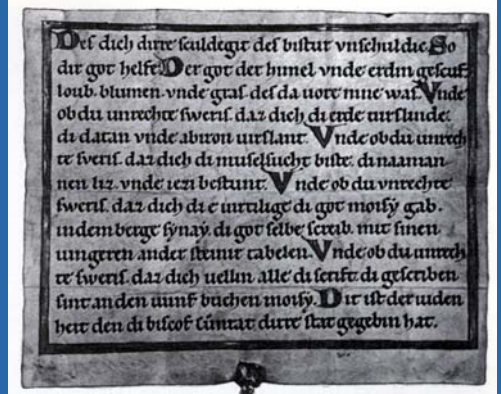 Des dich dirre sculdegit des bistur vnschuldic. So
dir got helfe. Der got der himel vnde erdin gescuf
loub. blumen. vnde gras. des da uore nine was. Vnde
ob du unrechte sweris. daz dich di erde uirslinde.
di datan vnde abiron uirslant. Vnde ob du unrech
te sveris. daz dich di muselsucht biste. di naaman
nen liz. vnde iezi bestunt. Vnde ob du vnrechte
sweris. daz dich di e uirtilige di got moisy gab.
in dem berge synay. di got selbe screib. mit sinen
uingeren an der steinir tabelen. Vnde ob du unrech
te sweris. daz dich uellin alle di scrift. di gescriben
sint an den uunf buchen moisy. Dit ist der iuden
heit den di biscof cůnrat dirre stat gegebin hat.